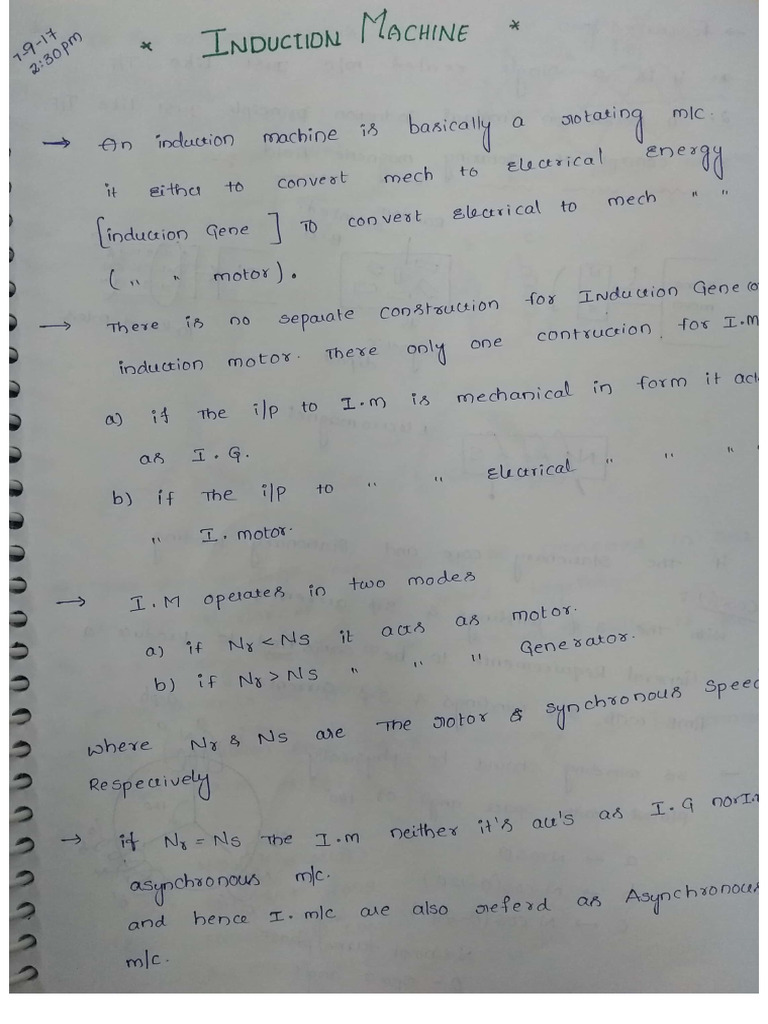 7-9-17
2:30pm
* INDUCTION MACHINE *
→ An induction machine is basically a rotating m/c.
it either to convert mech to Electrical Energy
[induction Gene] TO convert Electrical to mech " "
( " " motor).
→ There is no separate construction for INduction Gene or
induction motor. There only one contruction for I.M
a) if The i/p to I.m is mechanical in form it act
as I.G.
b) if The i/p to " " Electrical " " "
" I. motor.
→ I.M operates in two modes
a) if Nr < Ns it acts as motor.
b) if Nr > Ns " " " Generator.
where Nr & Ns are The rotor & synchronous Speed
Respectively
→ if Nr = Ns The I.m neither it's act's as I.G nor I.
asynchronous m/c.
and hence I. m/c are also referd as Asynchronous
m/c.